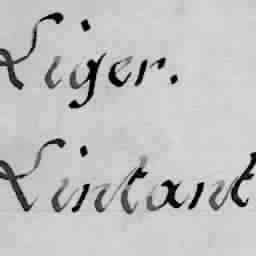 Liger.
Lintant